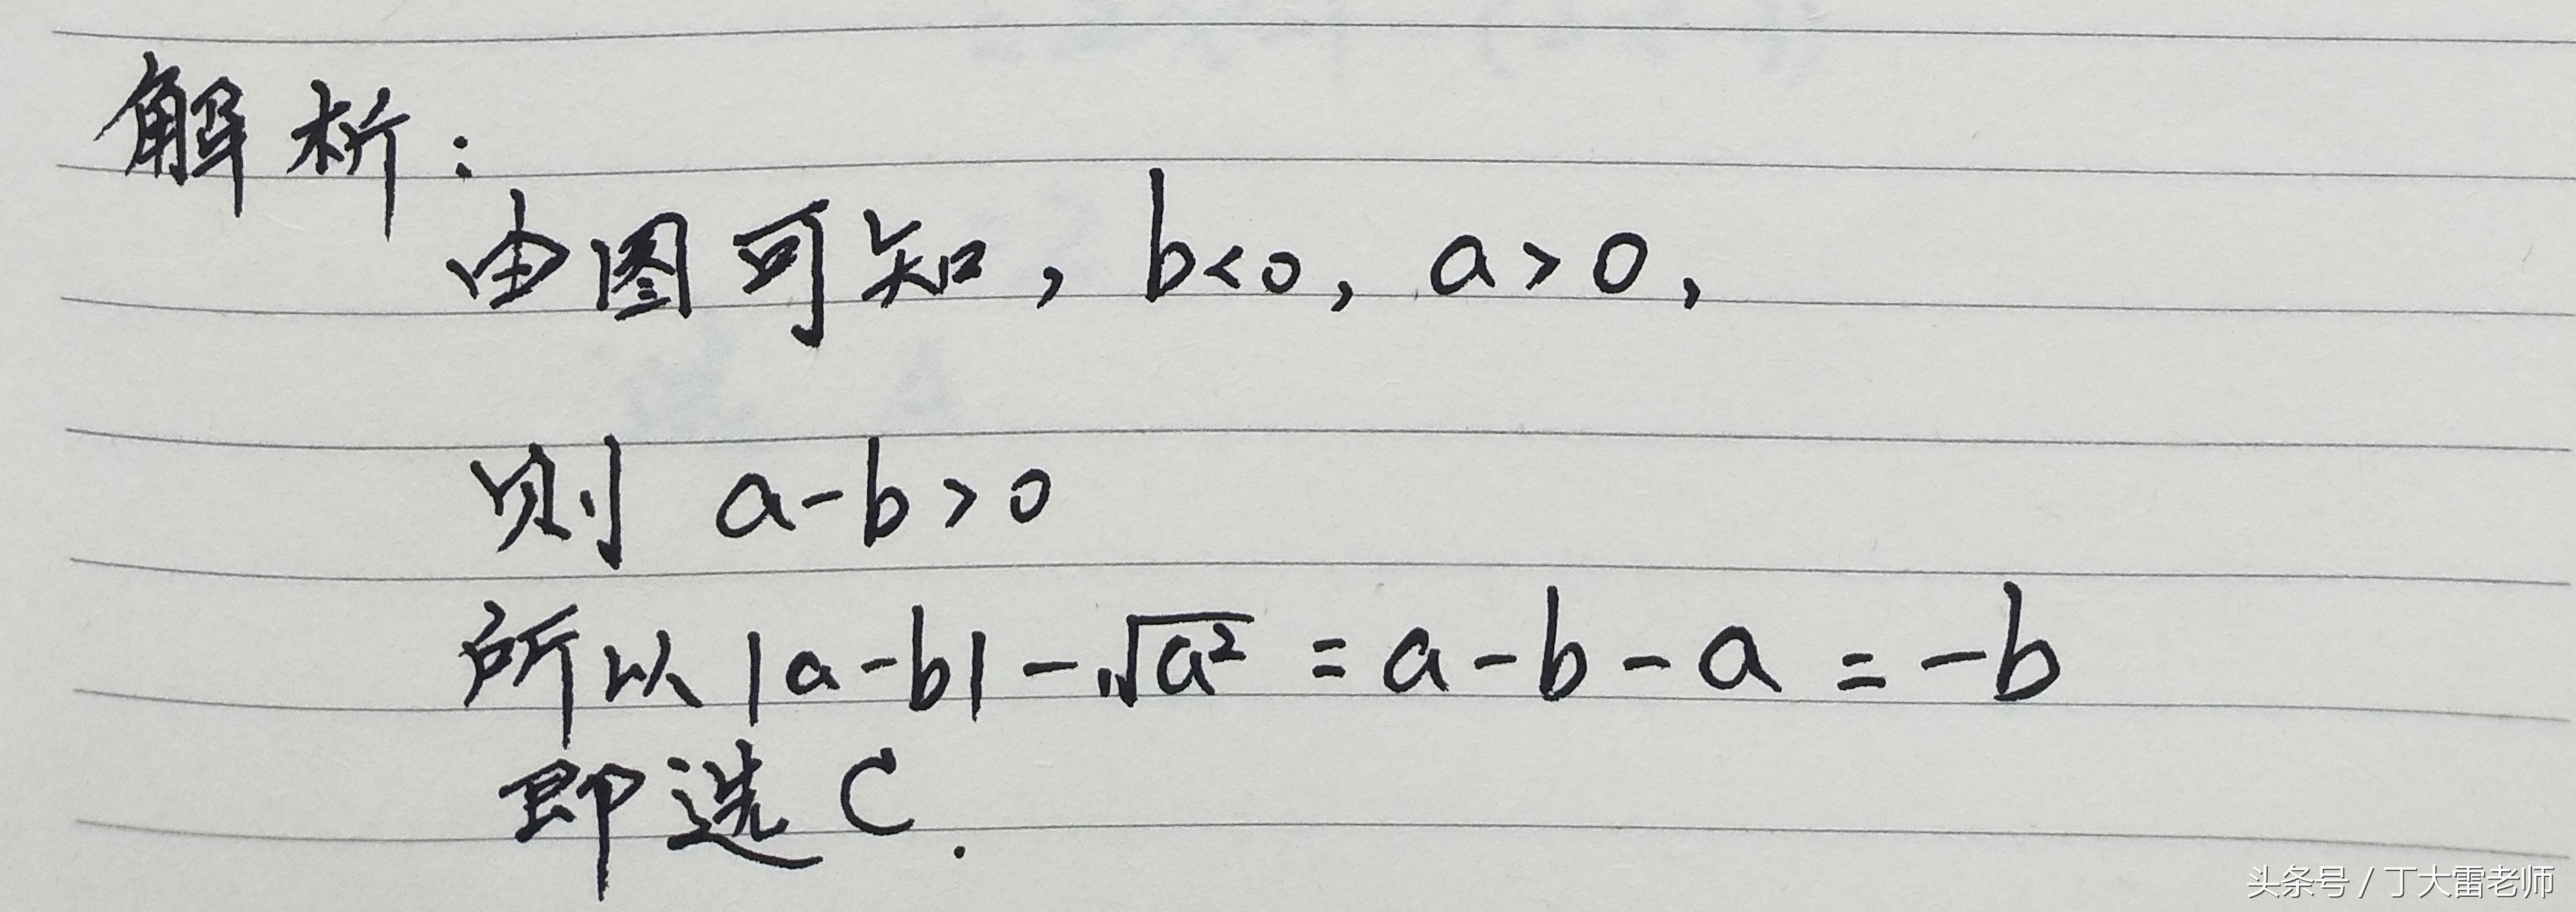 解析：
由图可知，b<0，a>0，
则 a-b>0
所以|a-b|-√a² = a-b-a = -b
即选C.
头条号 / 丁大雷老师